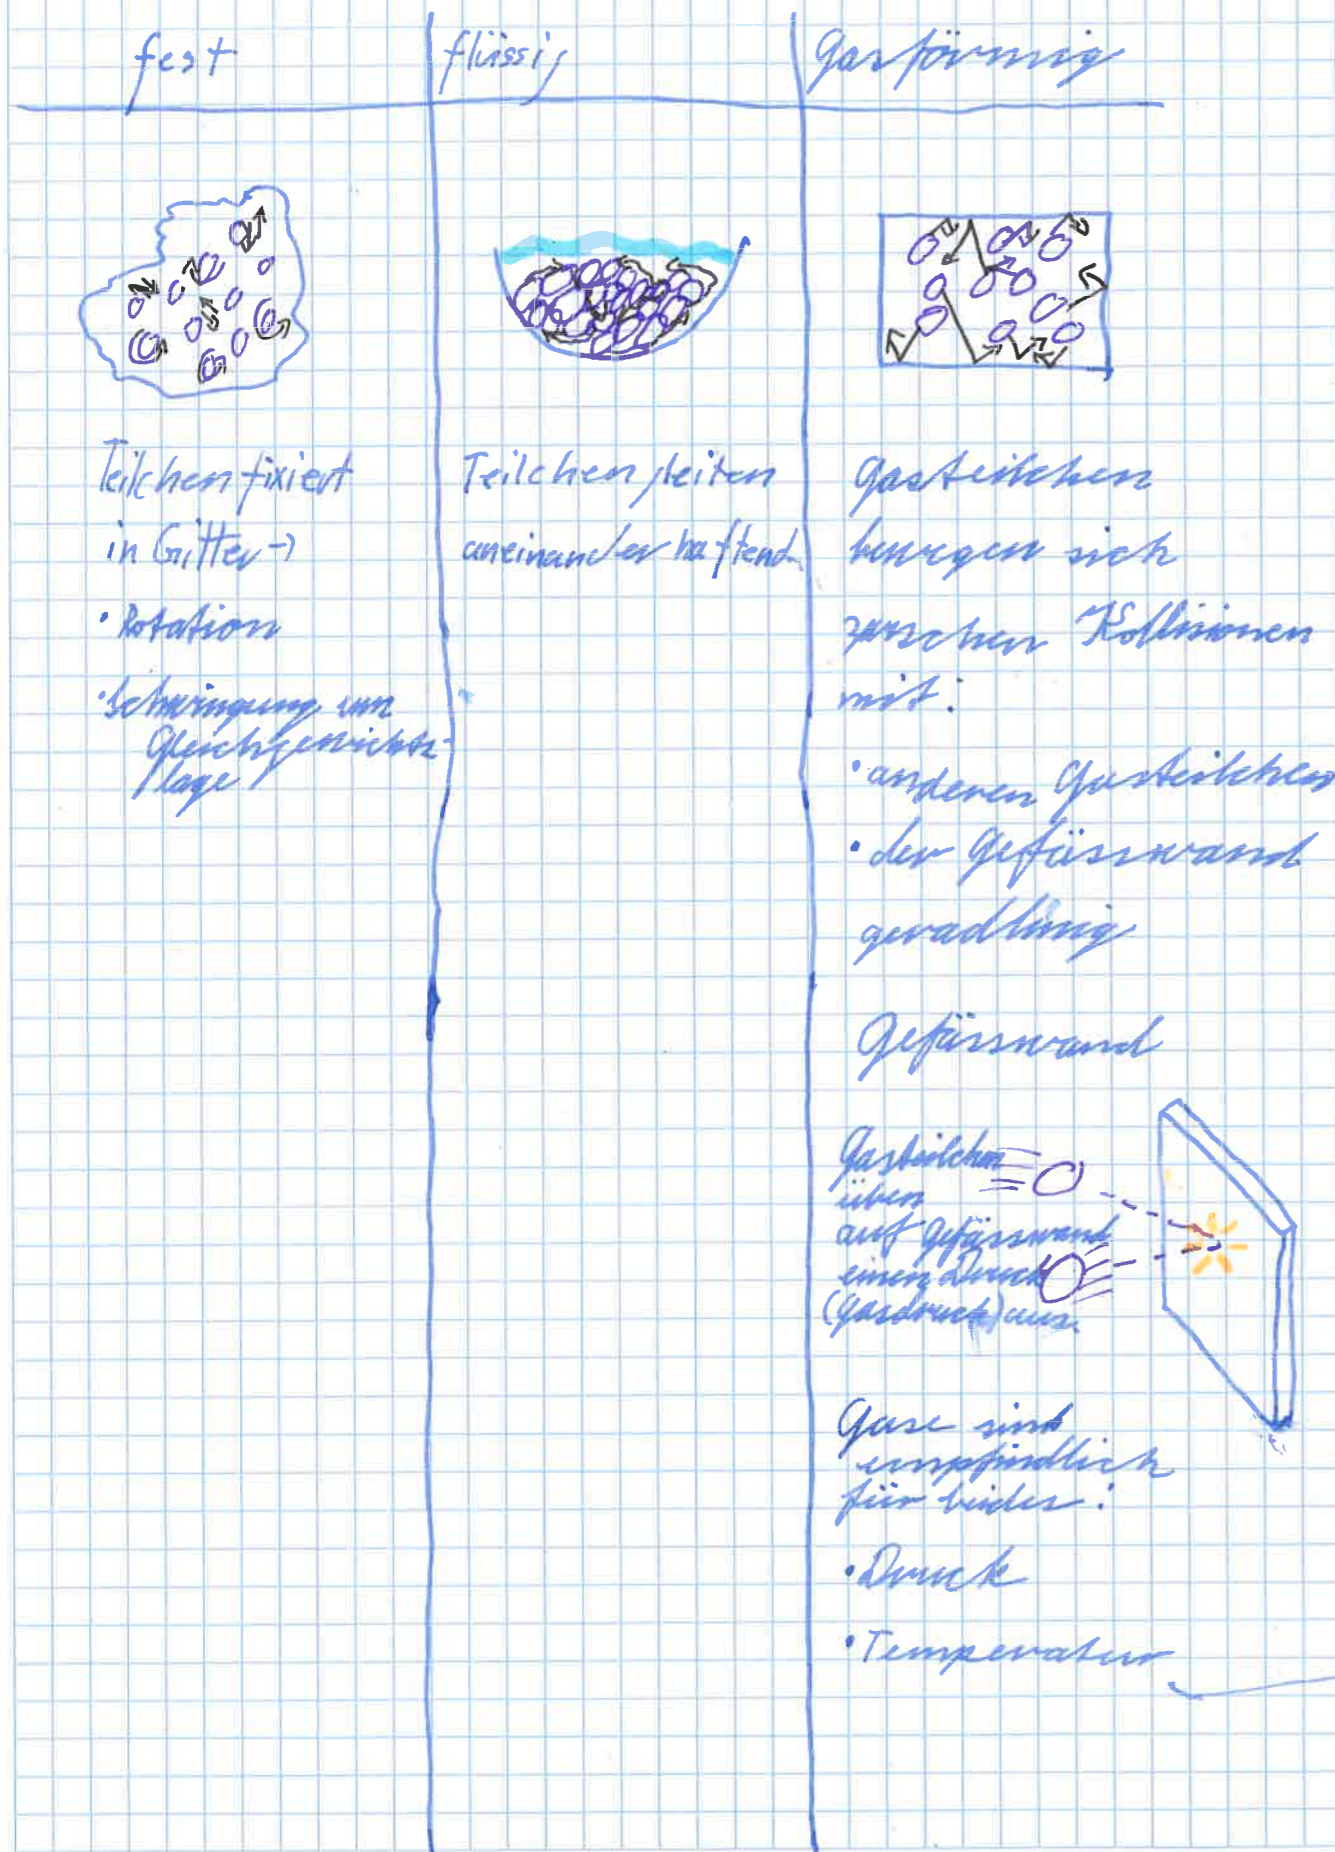 fest
flüssig
Gasförmig
Teilchen fixiert
in Gitter →
• Rotation
• Schwingung um
Gleichgewichts-
lage
Teilchen gleiten
aneinander haftend.
Gasteilchen
bewegen sich
zwischen Kollisionen
mit:
• anderen Gasteilchen
• der Gefässwand
geradlinig
Gefässwand
Gasteilchen
üben
auf Gefässwand
einen Druck
(Gasdruck) aus.
Gase sind
empfindlich
für beides:
• Druck
• Temperatur